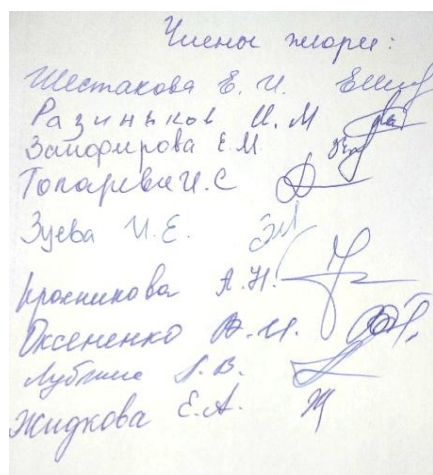 Члены жюри:
Шестакова Е. И.
Разиньков И. М
Запофирова Е.М.
Топарева И. С
Зуева И. Е.
А. Н.
Оксененко А. И.
Л. В.
Жидкова Е. А.